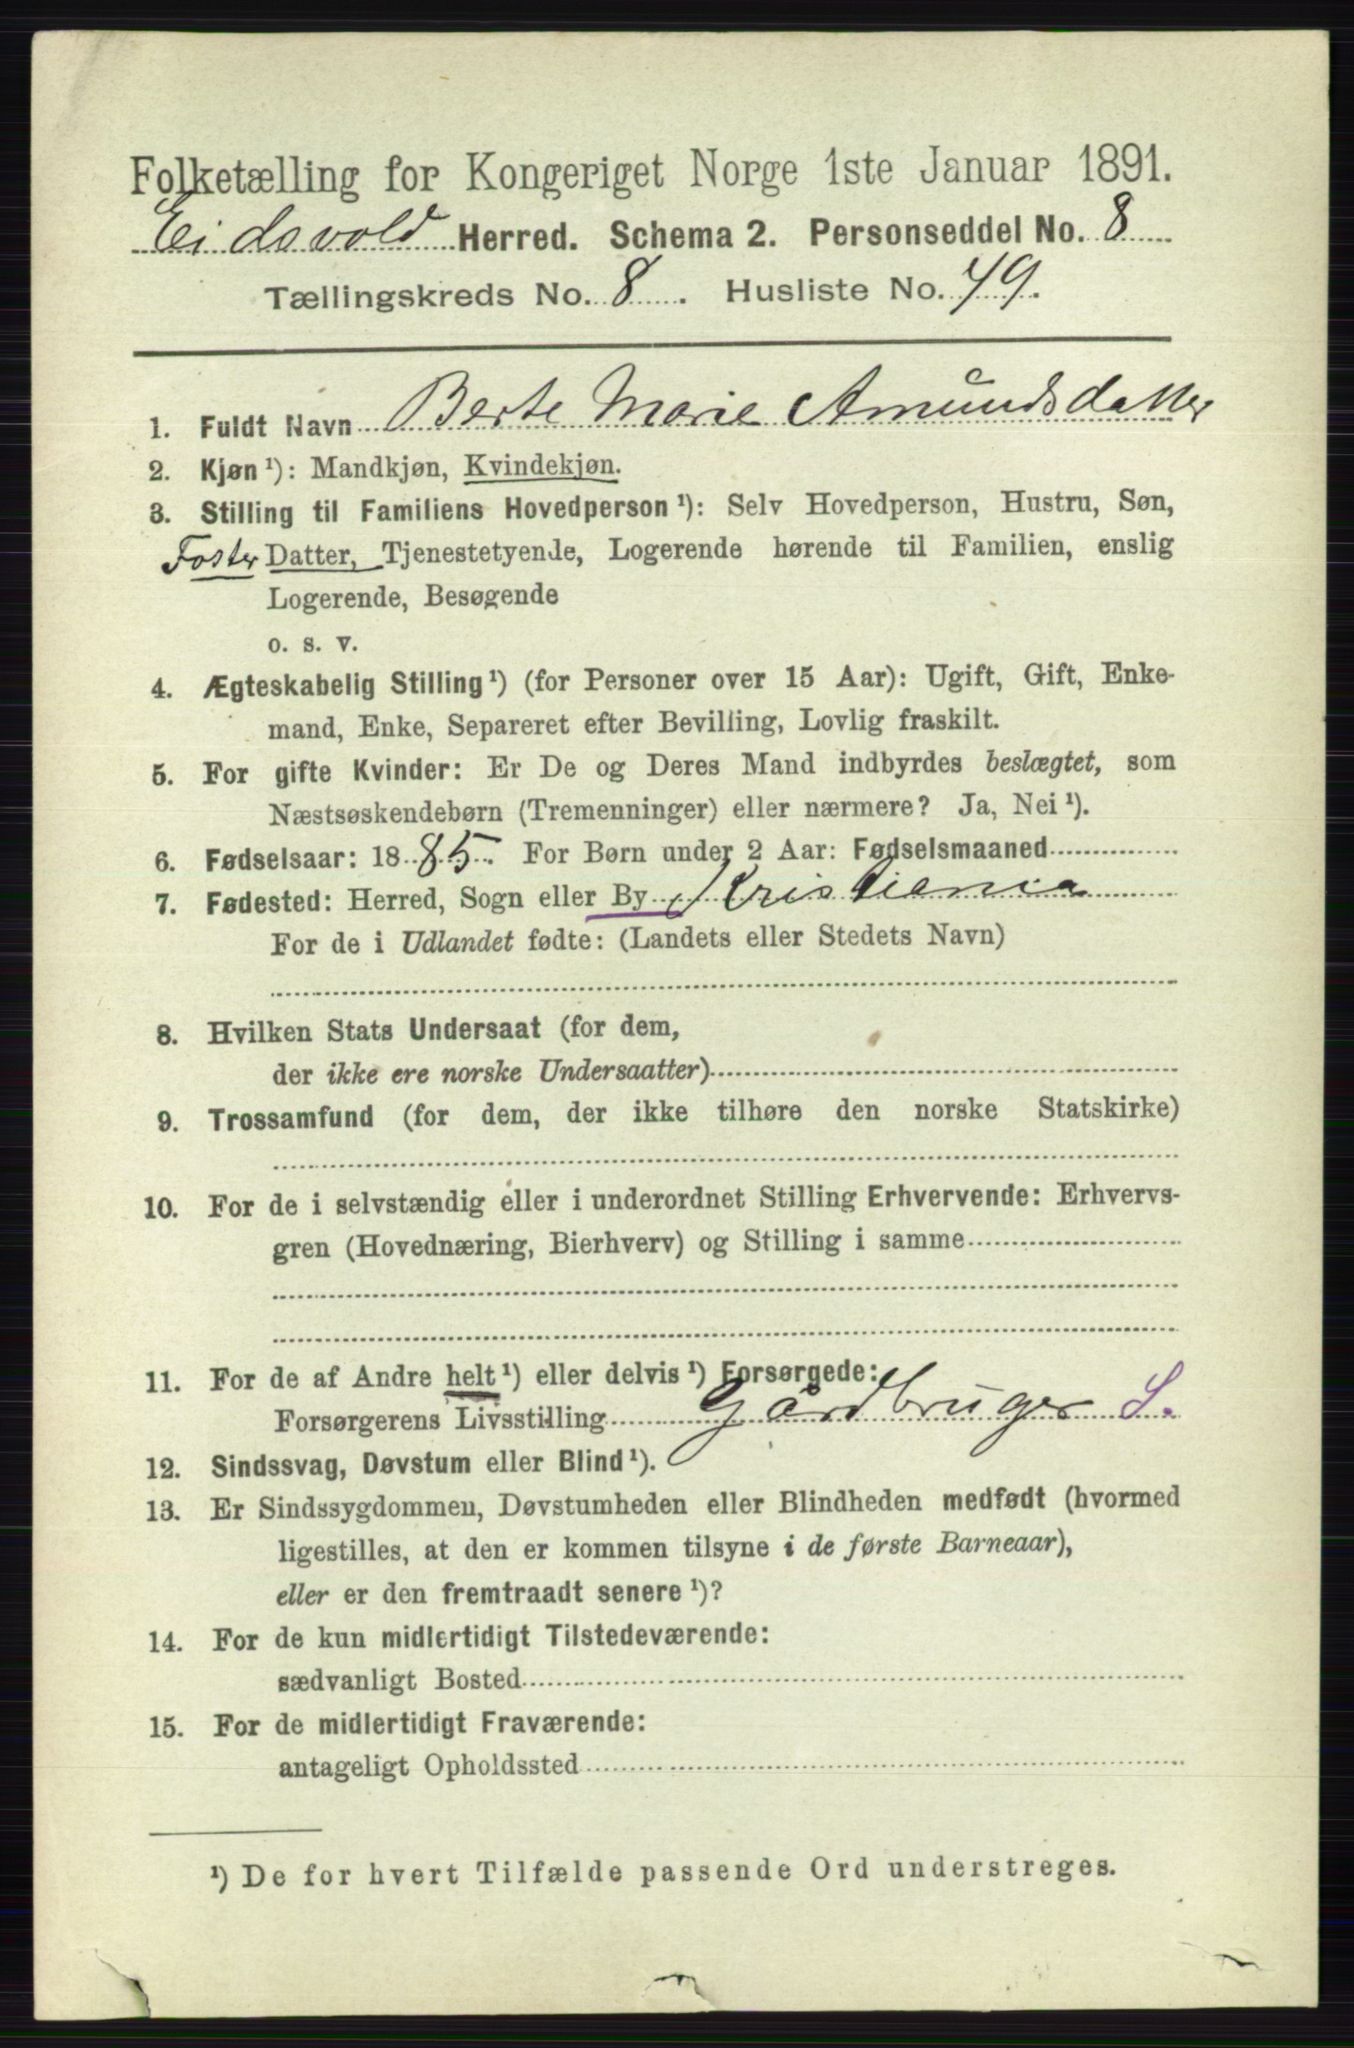 Folketælling for Kongeriget Norge 1ste Januar 1891.
Eidsvold Herred. Schema 2. Personseddel No. 8
Tællingskreds No. 8. Husliste No. 49.
1. Fuldt Navn Berte Marie Amundsdatter
2. Kjøn ¹): Mandkjøn, Kvindekjøn.
3. Stilling til Familiens Hovedperson ¹): Selv Hovedperson, Hustru, Søn,
Foster Datter, Tjenestetyende, Logerende hørende til Familien, enslig
Logerende, Besøgende
o. s. v.
4. Ægteskabelig Stilling ¹) (for Personer over 15 Aar): Ugift, Gift, Enke-
mand, Enke, Separeret efter Bevilling, Lovlig fraskilt.
5. For gifte Kvinder: Er De og Deres Mand indbyrdes beslægtet, som
Næstsøskendebørn (Tremenninger) eller nærmere? Ja, Nei ¹).
6. Fødselsaar: 1885. For Børn under 2 Aar: Fødselsmaaned
7. Fødested: Herred, Sogn eller By Kristiania
For de i Udlandet fødte: (Landets eller Stedets Navn)
8. Hvilken Stats Undersaat (for dem,
der ikke ere norske Undersaatter)
9. Trossamfund (for dem, der ikke tilhøre den norske Statskirke)
10. For de i selvstændig eller i underordnet Stilling Erhvervende: Erhvervs-
gren (Hovednæring, Bierhverv) og Stilling i samme
11. For de af Andre helt ¹) eller delvis ¹) Forsørgede:
Forsørgerens Livsstilling Gårdbruger S.
12. Sindssvag, Døvstum eller Blind ¹).
13. Er Sindssygdommen, Døvstumheden eller Blindheden medfødt (hvormed
ligestilles, at den er kommen tilsyne i de første Barneaar),
eller er den fremtraadt senere ¹)?
14. For de kun midlertidigt Tilstedeværende:
sædvanligt Bosted
15. For de midlertidigt Fraværende:
antageligt Opholdssted
¹) De for hvert Tilfælde passende Ord understreges.